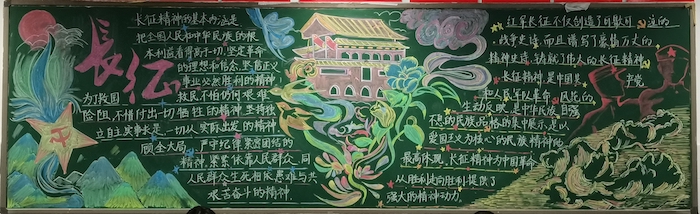 长征
长征精神的基本内涵是
把全国人民和中华民族的根
本利益看得高于一切,坚定革命
的理想和信念,坚信正义
事业必然胜利的精神
为了救国
救民,不怕任何艰难
险阻,不惜付出一切牺牲的精神 坚持独
立自主实事求是,一切从实际出发的精神
顾全大局、严守纪律紧密团结的
精神,紧紧依靠人民群众,同
人民群众生死相依患难与共
艰苦奋斗的精神
红军长征不仅创造了可歌可泣的
战争史诗,而且谱写了豪情万丈的
精神史诗,铸就了伟大的长征精神
长征精神,是中国共
产党
和人民军队革命风范的
生动反映,是中华民族自强
不息的民族品格的集中展示,是以
爱国主义为核心的民族精神的
最高体现,长征精神为中国革命
从胜利走向胜利提供了
强大的精神动力